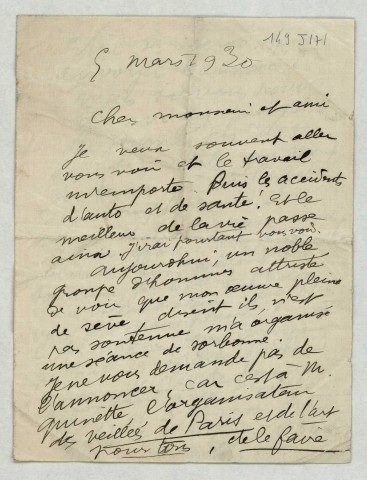 149 J 171
5 mars 1930
Cher monsieur et ami
Je veux souvent aller
vous voir et le travail
m'emporte. Puis les accidents
d'auto et de santé! Et le
meilleur de la vie passe
ainsi j'irai pourtant vous voir.
aujourdhui, un noble
groupe d'hommes attristé
de voir que mon œuvre pleine
de sève disent ils, n'est
pas soutenue m'a organisé
une séance de sorbonne.
Je ne vous demande pas de
l'annoncer, car c'est a M.
l'organisateur
des veillée de Paris et de l'art
pour tous, de le faire